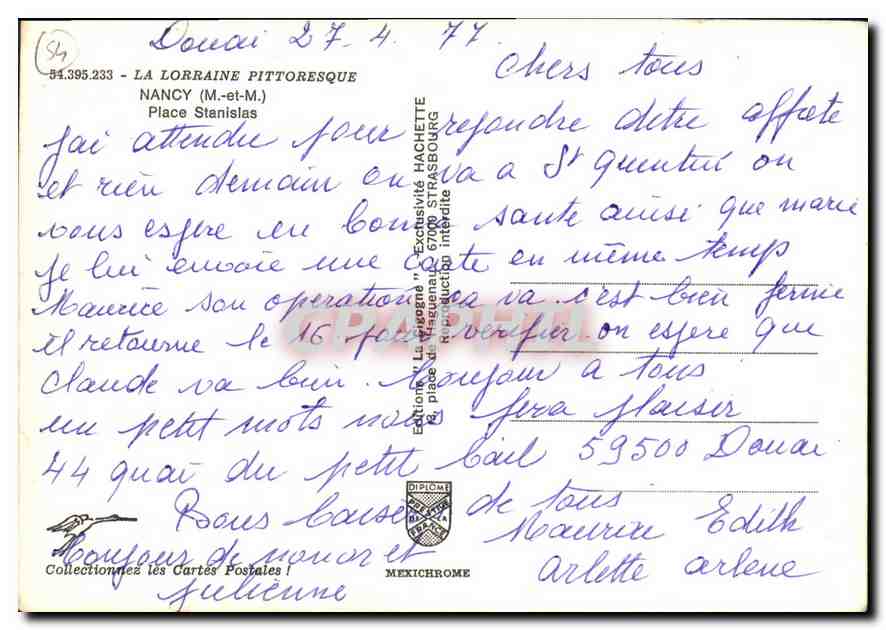 Douai 27.4.77
54
54.395.233 - LA LORRAINE PITTORESQUE
NANCY (M.-et-M.)
Place Stanislas
chers tous
jai attendu pour rejondre detre
et rien demain on va a St quentin on
vous espere en bonne sante ainsi que marie
je lui envoie une carte en même temp
Maurice son operation ca va c'est bien fermé
il retourne le 16 pour verifier on espere que
claude va bien. bonjour a tous
un petit mots nous fera plaisir
44 quai du petit bail 59500 Douai
Bons baisers de tous
Maurice Edith
Arlette arlene
bonjour de et
julienne
Editions "La Cigogne" - Exclusivité HACHETTE
place de Haguenau, 67000 STRASBOURG
Reproduction interdite
CRAPHTI
DIPLOME
PRESTIGE
DE LA
FRANCE
Collectionnez les Cartes Postales !
MEXICHROME